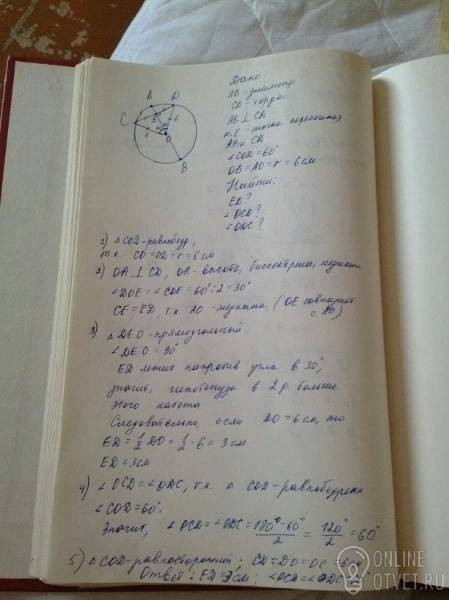 Дано:
AB - диаметр
CD - хорда
AB ⊥ CD
т. E - точка пересечения
AB и CD
∠COD = 60°
OB = AO = r = 6 см
Найти:
ED?
∠OCD?
∠ODC?
A D
C E
6 6
O
B
1) △ COD - равнобедр,
т.к. CO = OD = r = 6 см
2) OA ⊥ CD, OA - высота, биссектриса, медиана
∠DOE = ∠COE = 60° : 2 = 30°
CE = ED, т.к. AO - медиана, (OE совпадает
с AO)
3) △ DEO - прямоугольный
∠DEO = 90°
ED лежит напротив угла в 30°,
значит, гипотенуза в 2 р. больше
этого катета
Следовательно, если DO = 6 см, то
ED = 1/2 DO = 1/2 · 6 = 3 см
ED = 3 см
4) ∠OCD = ∠ODC, т.к. △ COD - равнобедрен
∠COD = 60°.
Значит, ∠OCD = ∠ODC = (180° - 60°)/2 = 120°/2 = 60°
5) △ COD - равносторонний; CD = DO = OC = 6 см
Ответ: ED = 3 см; ∠OCD = ∠ODC =
ONLINE
OTVET.RU